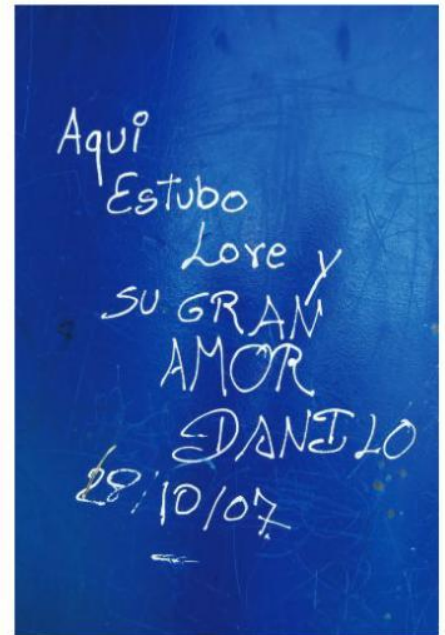 Aqui
Estubo
Lore y
SU GRAN
AMOR
DANILO
28/10/07